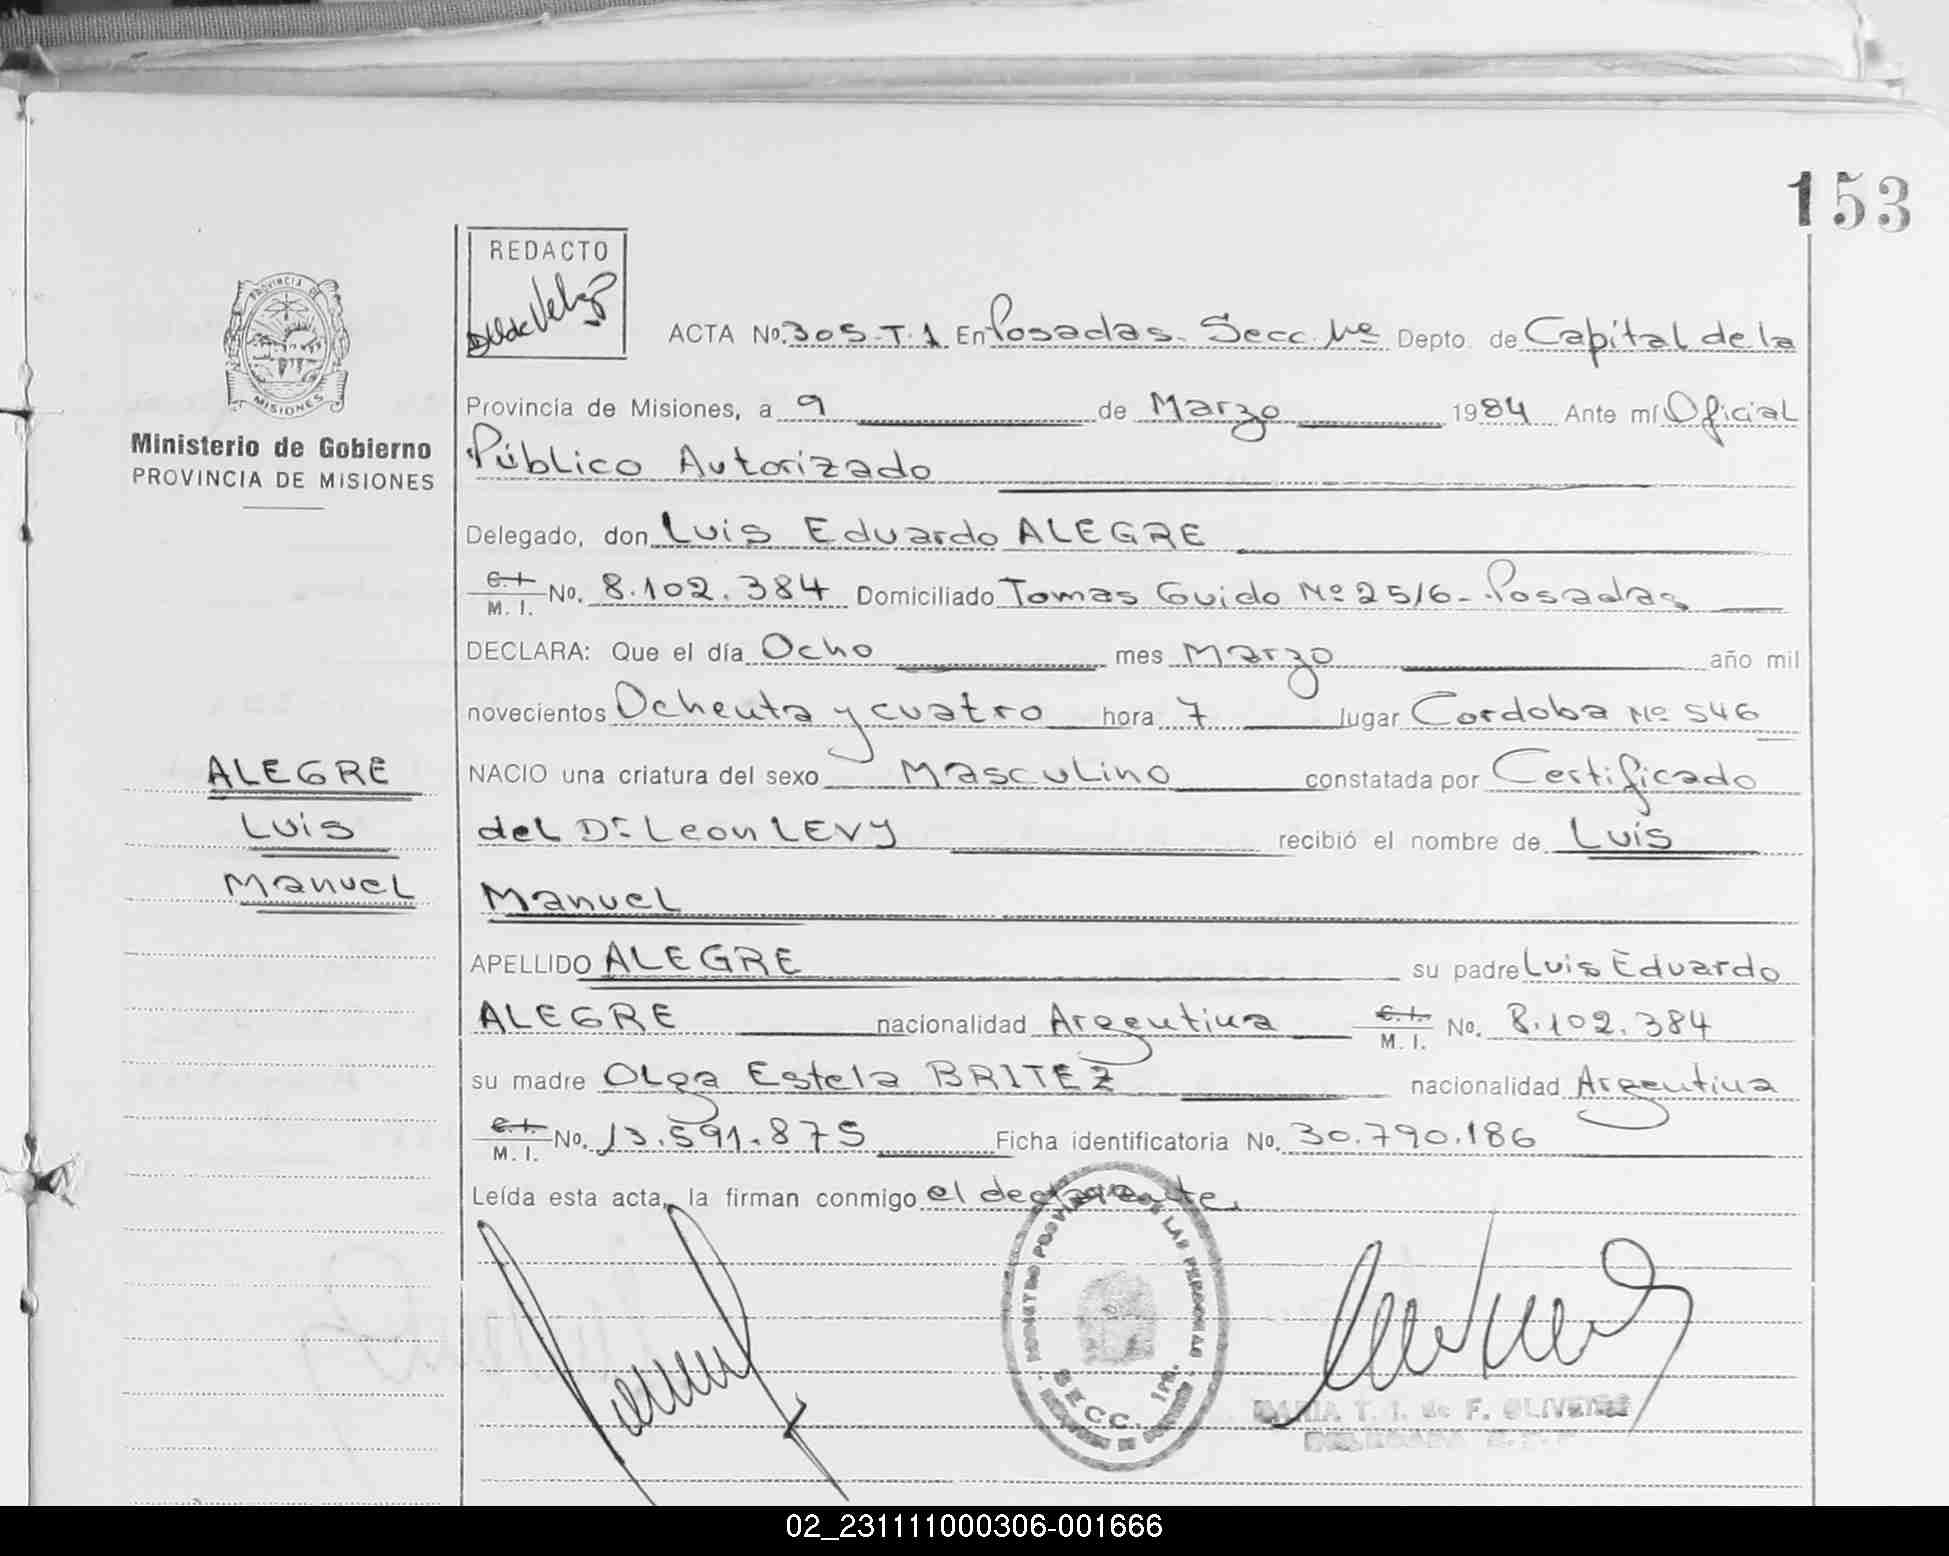 153
REDACTO
ACTA No. 305-T.1 En Posadas. Secc. 1ra Depto. de Capital de la
Provincia de Misiones, a 9 de Marzo 1984 Ante mí Oficial
Ministerio de Gobierno
PROVINCIA DE MISIONES
Público Autorizado
Delegado, don Luis Eduardo ALEGRE
C. I. M. I. No. 8.102.384 Domiciliado Tomas Guido Nº 2516 - Posadas
DECLARA: Que el día Ocho mes Marzo año mil
novecientos Ochenta y cuatro hora 7 lugar Cordoba Nº 546
ALEGRE
Luis
Manuel
NACIO una criatura del sexo Masculino constatada por Certificado
del Dr Leon LEVY recibió el nombre de Luis
Manuel
APELLIDO ALEGRE su padre Luis Eduardo
ALEGRE nacionalidad Argentina C. I. M. I. No. 8.102.384
su madre Olga Estela BRITEZ nacionalidad Argentina
C. I. M. I. No. 13.591.875 Ficha identificatoria No. 30.790.186
Leída esta acta, la firman conmigo el declarante.
SECC. 1ra.
MARIA T. I. de F. OLIVERA
02_231111000306-001666